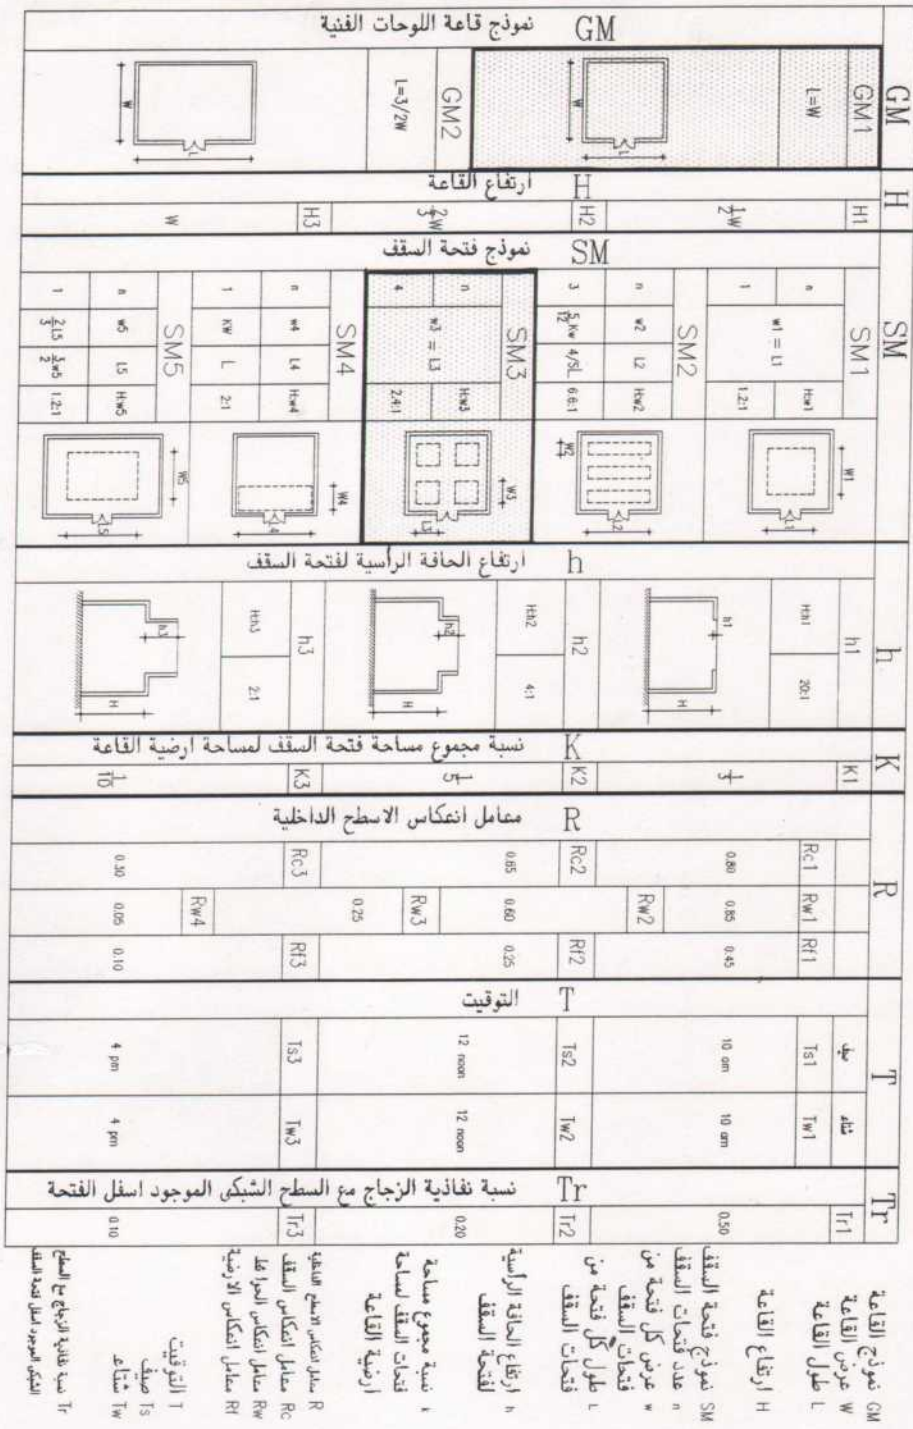 GM نموذج قاعة اللوحات الفنية
GM
GM1
L=W
W
L
GM2
L=3/2W
W
L
H ارتفاع القاعة
H
H1
1/2 W
H2
H3
W
SM نموذج فتحة السقف
SM
SM1
n
w1 = L1
H:w1
1
1.2:1
W1
L1
SM2
n
w2
L2
H:w2
3
5/12 Kw
4/5L
6.6:1
W2
L2
SM3
n
w3 = L3
H:w3
4
2.4:1
W3
L3
SM4
n
w4
L4
H:w4
1
KW
L
2:1
W4
L4
SM5
n
w5
L5
H:w5
1
2/3 L5
3/2 w5
1.2:1
W5
L5
h ارتفاع الحافة الرأسية لفتحة السقف
h
h1
H:h1
20:1
h1
H
h2
H:h2
4:1
h2
H
h3
H:h3
2:1
h3
H
K نسبة مجموع مساحة فتحة السقف لمساحة ارضية القاعة
K
K1
K2
1/5
K3
1/10
R معامل انعكاس الاسطح الداخلية
R
Rc1
0.80
Rc2
0.65
Rc3
0.30
Rw1
0.85
Rw2
0.60
Rw3
0.25
Rw4
0.05
Rf1
0.45
Rf2
0.25
Rf3
0.10
T التوقيت
T
صيف
Ts1
10 am
Ts2
12 noon
Ts3
4 pm
شتاء
Tw1
10 am
Tw2
12 noon
Tw3
4 pm
Tr نسبة نفاذية الزجاج مع السطح الشبكى الموجود اسفل الفتحة
Tr
Tr1
0.50
Tr2
0.20
Tr3
0.10
GM نموذج القاعة
W عرض القاعة
L طول القاعة
H ارتفاع القاعة
SM نموذج فتحة السقف
n عدد فتحات السقف
w عرض كل فتحة من فتحات السقف
L طول كل فتحة من فتحات السقف
h ارتفاع الحافة الرأسية لفتحة السقف
k نسبة مجموع مساحة فتحات السقف لمساحة ارضية القاعة
R معامل انعكاس الاسطح الداخلية
Rc معامل انعكاس السقف
Rw معامل انعكاس الحوائط
Rf معامل انعكاس الارضية
T التوقيت
Ts صيف
Tw شتاء
Tr نسبة نفاذية الزجاج مع السطح الشبكى الموجود اسفل فتحة السقف